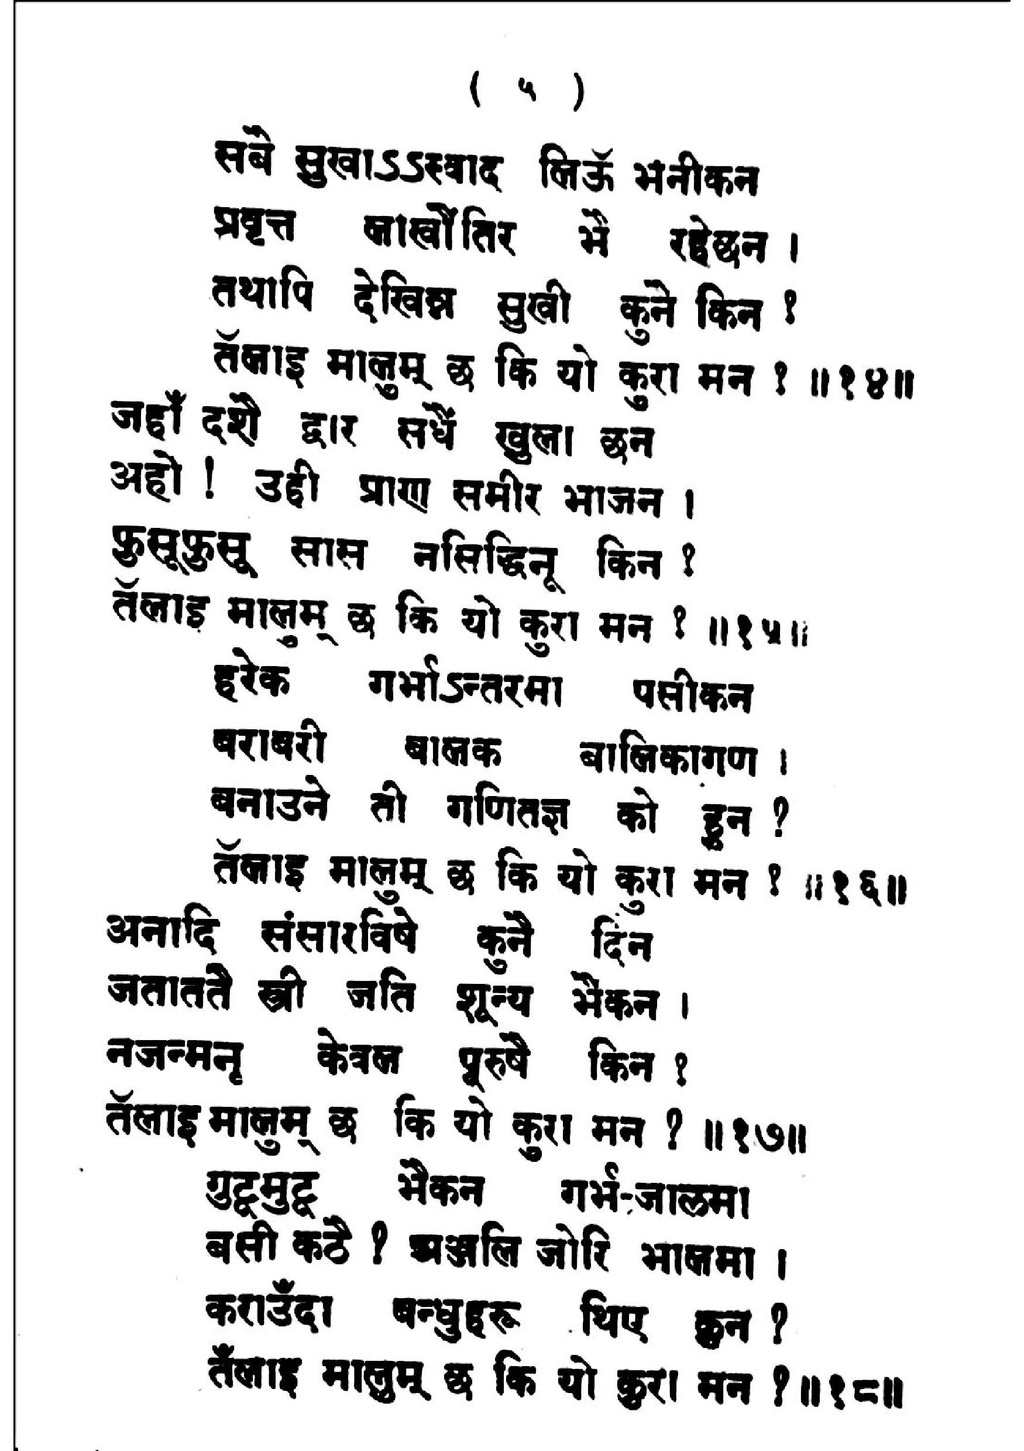 ( ५ )
सबै सुखाऽऽस्वाद लिऊँ भनीकन
प्रवृत्त लाखौंतिर भै रहेछन ।
तथापि देखिन्न सुखी कुनै किन ?
तँलाइ मालुम् छ कि यो कुरा मन ? ॥१४॥
जहाँ दशै द्वार सधैं खुला छन
अहो ! उही प्राण समीर भाजन ।
फुसूफुसू सास नसिद्धिनू किन ?
तँलाइ मालुम् छ कि यो कुरा मन ? ॥१५॥
हरेक गर्भाऽन्तरमा पसीकन
बराबरी बालक बालिकागण ।
बनाउने ती गणितज्ञ को हुन ?
तँलाइ मालुम् छ कि यो कुरा मन ? ॥१६॥
अनादि संसारविषे कुनै दिन
जताततै स्त्री जति शून्य भैकन ।
नजन्मनू केवल पूरुषै किन ?
तँलाइ मालुम् छ कि यो कुरा मन ? ॥१७॥
गुटूमुटू भैकन गर्भ-जालमा
बसी कठै ? अञ्जलि जोरि भालमा ।
कराउँदा बन्धुहरू थिए कुन ?
तँलाइ मालुम् छ कि यो कुरा मन ? ॥१८॥